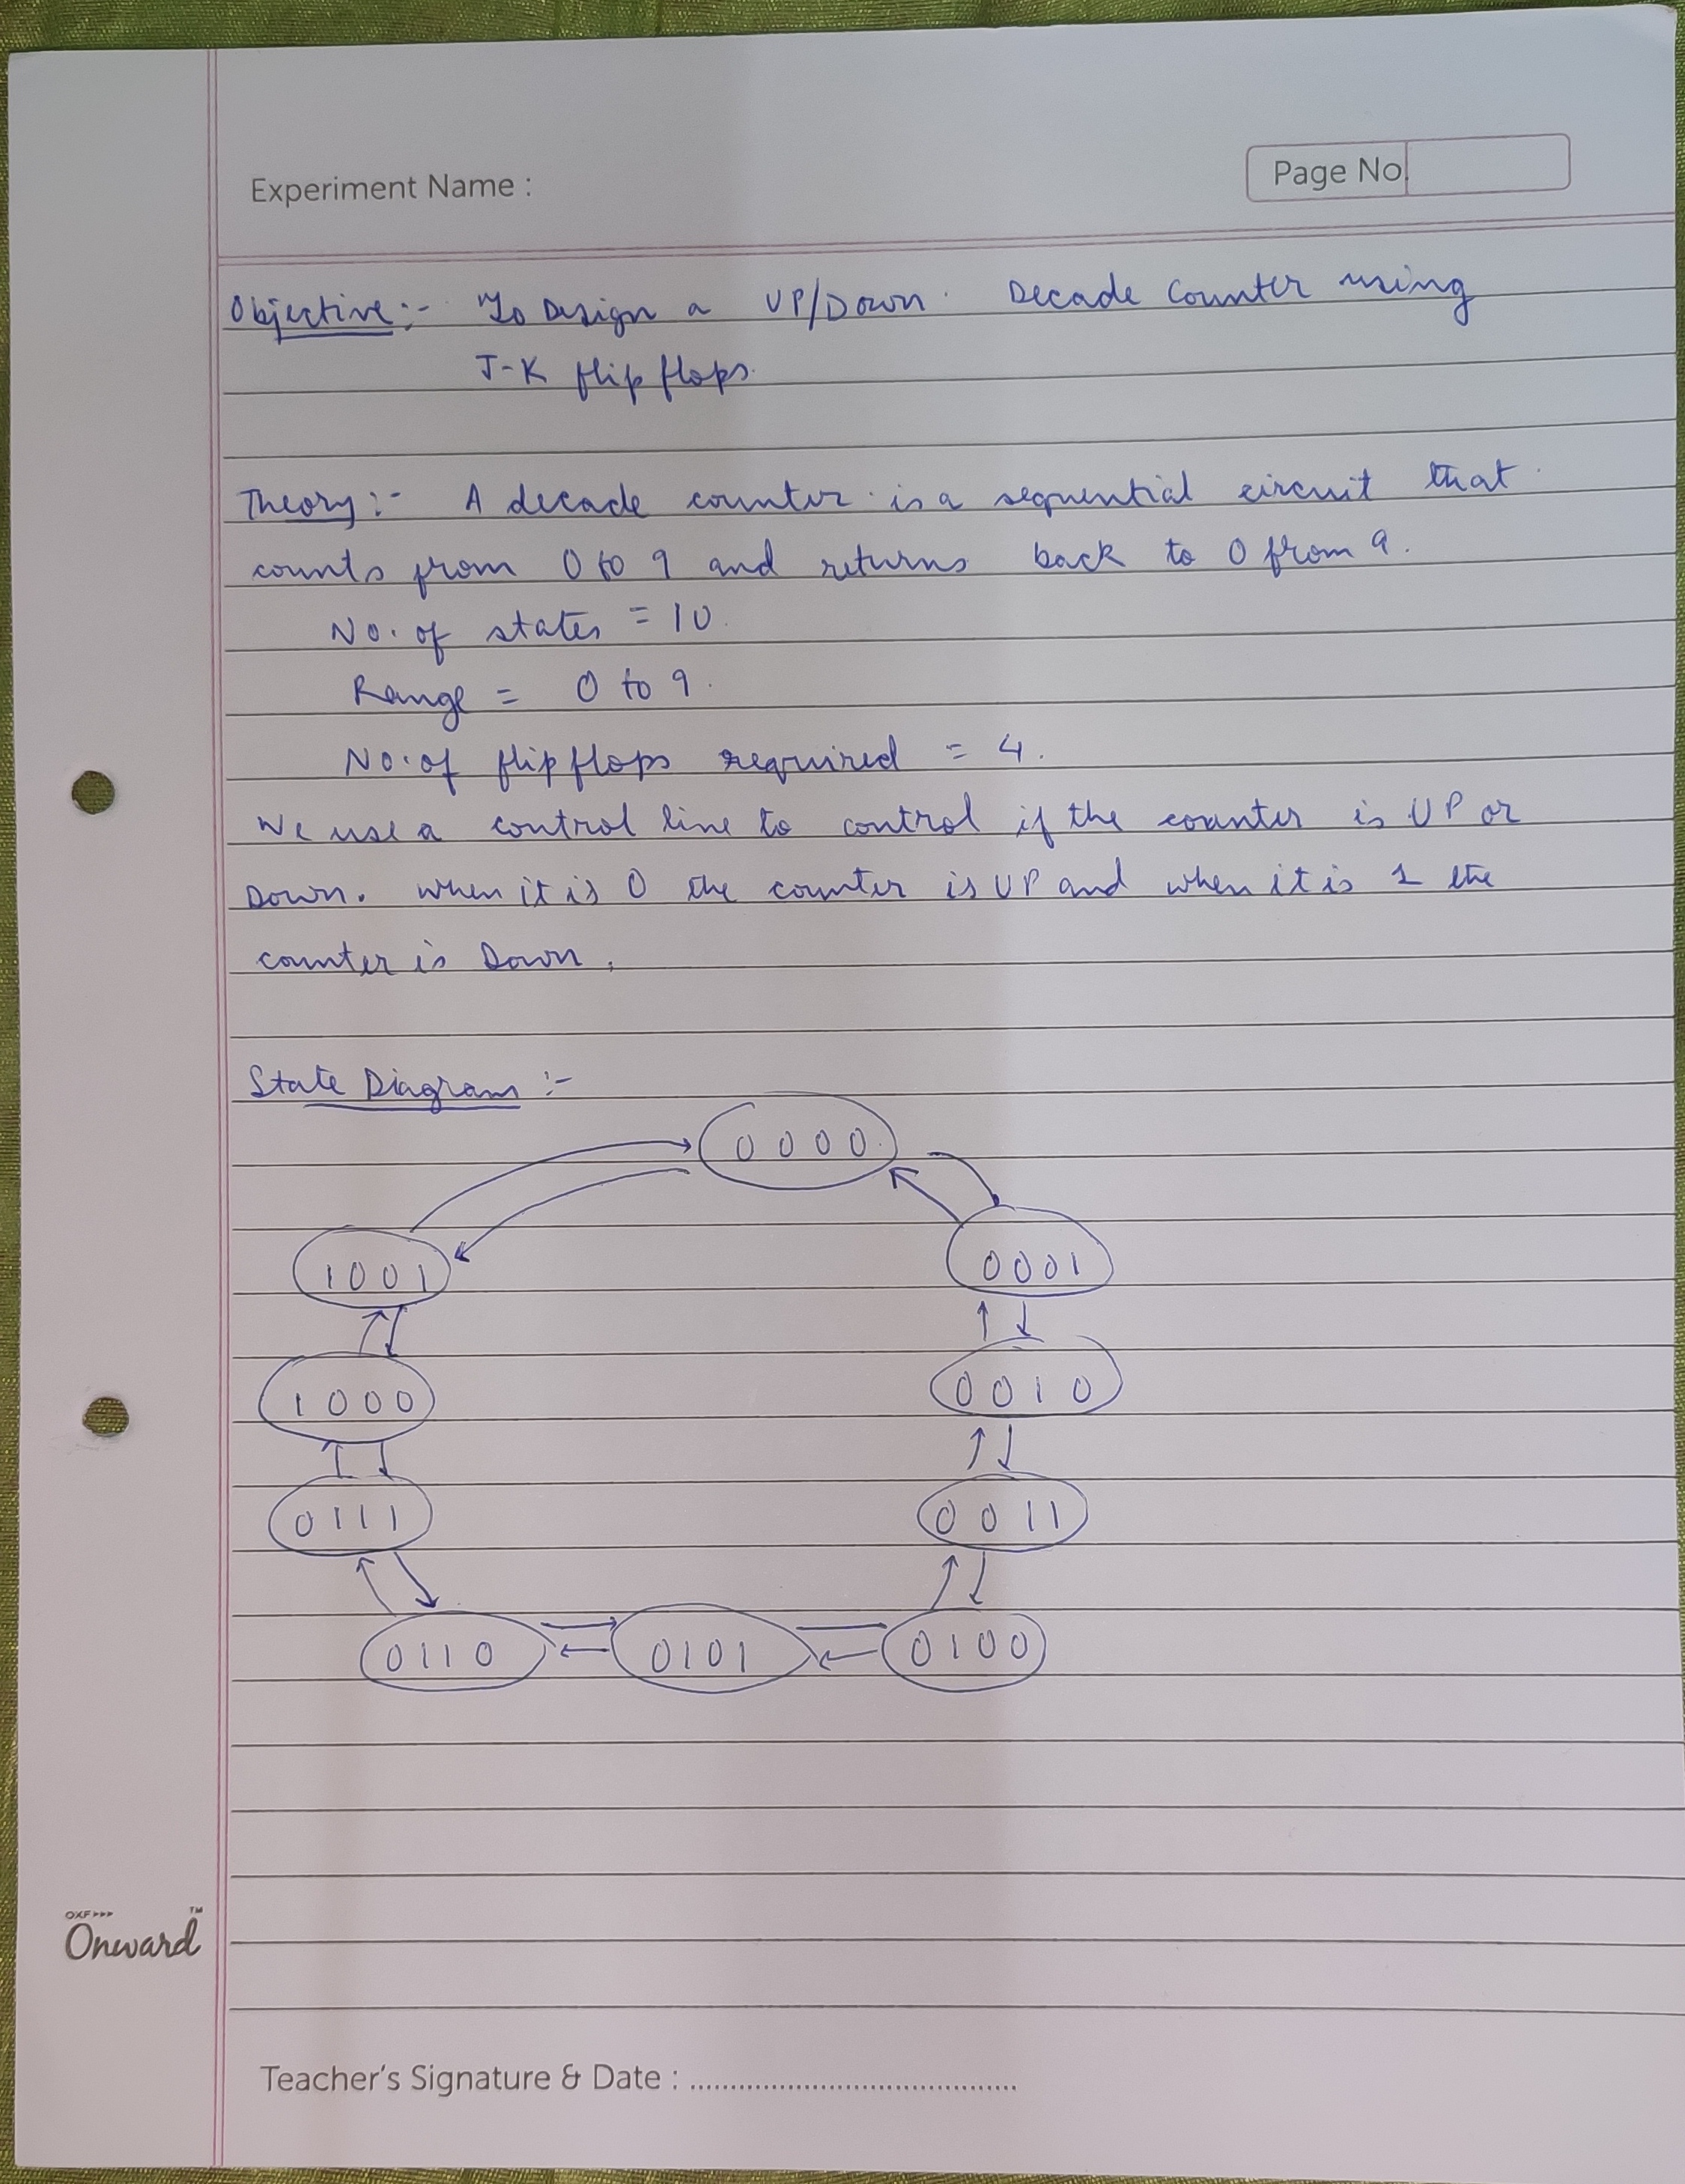 Experiment Name :
Page No
Objective:- To Design a UP/Down Decade Counter using
J-K flip flops.
Theory:- A decade counter is a sequential circuit that
counts from 0 to 9 and returns back to 0 from 9.
No. of states = 10
Range = 0 to 9.
No. of flip flops required = 4.
We use a control line to control if the counter is UP or
Down. When it is 0 the counter is UP and when it is 1 the
counter is Down.
State Diagram :-
0000
1001
0001
1000
0010
0111
0011
0110
0101
0100
OXF>>>
Onward™
Teacher's Signature & Date : ........................................